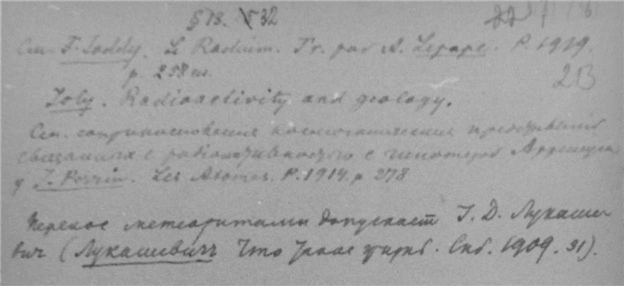 § 18. 32
См. F. Soddy. Le Radium. Tr. par A. Lepape. P. 1919.
p. 258
23
Joly. Radioactivity and geology.
См. соприкосновения космогонических представлений
связанных с радиоактивностью с гипотезой Аррениуса
у J. Perrin. Les Atomes. P. 1914. p. 278
Перенос метеоритами допускает I. Д. Лукаше
вич (Лукашевич Что такое жизнь. Спб. 1909. 31).